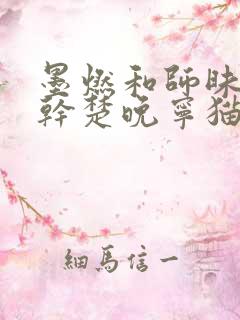 墨燃和師昧
幹楚晚寧猫
細馬信一